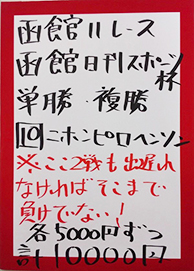 函館11レース
函館日刊スポーツ杯
単勝・複勝
⑩ニホンピロヘンソン
※ここ2戦も出遅れ
なければそこまで
負けてない！
各5000円ずつ
計10000円